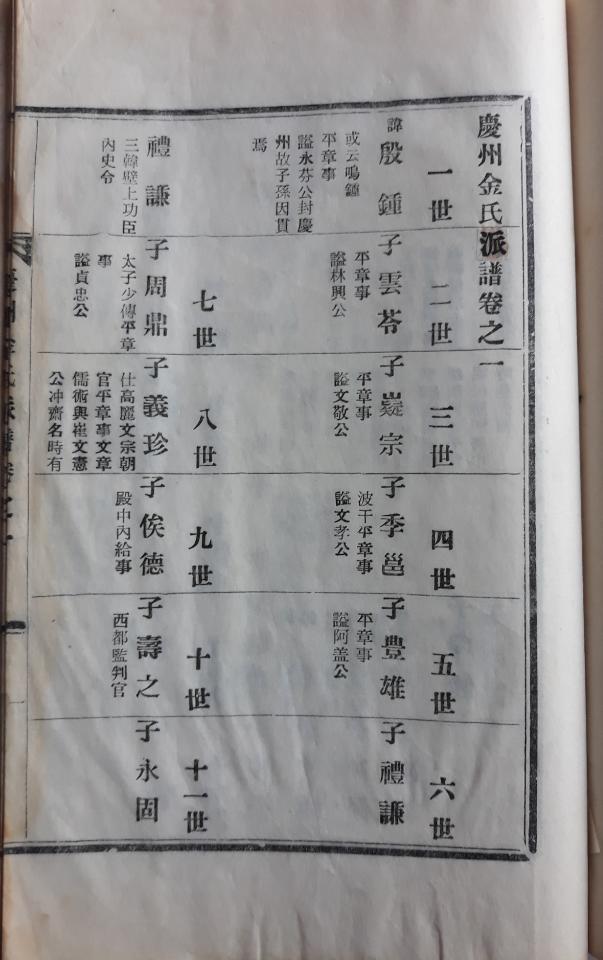 慶州金氏派譜卷之一
一世
諱殷鍾
或云鳴鍾
平章事
謚永芬公封慶
州故子孫因貫
焉
二世
子雲苓
平章事
謚林興公
三世
子嶷宗
平章事
謚文敬公
四世
子季邕
波干平章事
謚文孝公
五世
子豊雄
平章事
謚阿盖公
六世
子禮謙
禮謙
三韓壁上功臣
內史令
七世
子周鼎
太子少傅平章
事
謚貞忠公
八世
子義珍
仕高麗文宗朝
官平章事文章
儒術與崔文憲
公冲齋名時有
九世
子俟德
殿中內給事
十世
子壽之
西都監判官
十一世
子永固